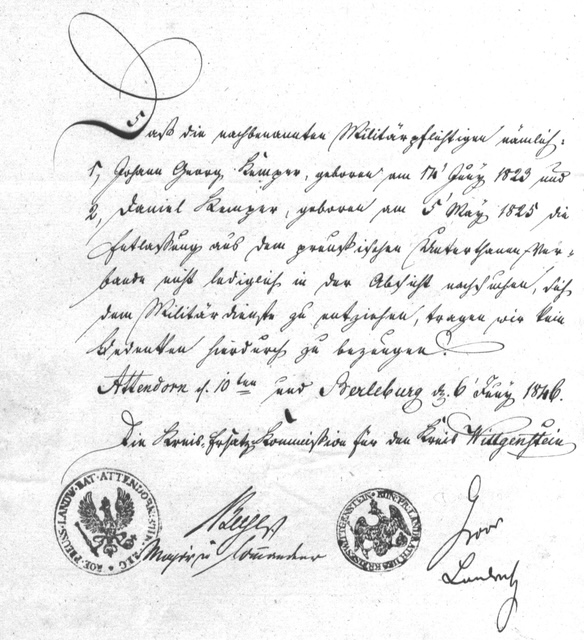 Daß die nachbenannten Militärpflichtigen nämlich:
1, Johann Georg Kemper, geboren am 14' Juny 1823 und
2, Daniel Kemper, geboren am 5' May 1825 die
Entlassung aus dem preußischen Unterthanen-Ver-
bande nicht lediglich in der Absicht nachsuchen, sich
dem Militärdienste zu entziehen, tragen wir kein
Bedenken hierdurch zu bezeugen.
Attendorn d. 10ten und Berleburg d. 6' Juny 1846.
Die Kreis-Ersatz-Kommission für den Kreis Wittgenstein
Major u Commandeur
Landrath